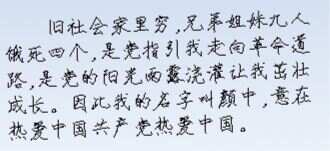 旧社会家里穷,兄弟姐妹九人
饿死四个,是党指引我走向革命道
路,是党的阳光雨露浇灌让我茁壮
成长。因此我的名字叫颜中,意在
热爱中国共产党热爱中国。